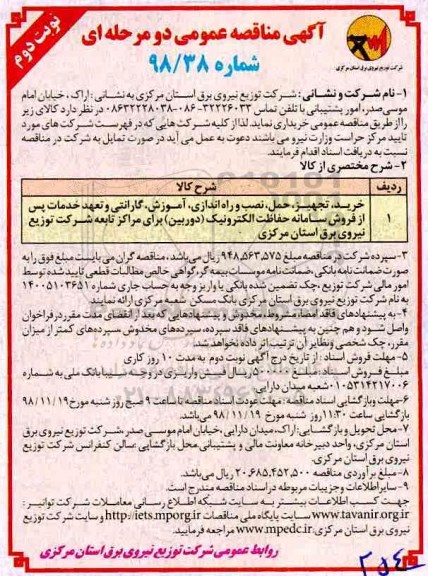 نوبت دوم
آگهی مناقصه عمومی دو مرحله ای
شماره ۹۸/۳۸
شرکت توزیع نیروی برق استان مرکزی
۱- نام شرکت و نشانی: شرکت توزیع نیروی برق استان مرکزی به نشانی: اراک، خیابان امام
موسی صدر، امور پشتیبانی با تلفن تماس ۳۲۲۲۶۰۳۳-۰۸۶ ۰۸۶۳۲۲۲۸۰۳۸ در نظر دارد کالای زیر
را از طریق مناقصه عمومی خریداری نماید. لذا از کلیه شرکت هایی که در فهرست شرکت های مورد
تایید مرکز حراست وزارت نیرو می باشند دعوت به عمل می آید در صورت تمایل به شرکت در مناقصه
نسبت به دریافت اسناد اقدام فرمایند.
۲- شرح مختصری از کالا
ردیف شرح کالا
۱ خرید، تجهیز، حمل، نصب و راه اندازی، آموزش، گارانتی و تعهد خدمات پس
از فروش سامانه حفاظت الکترونیک (دوربین) برای مراکز تابعه شرکت توزیع
نیروی برق استان مرکزی
۳- سپرده شرکت در مناقصه مبلغ ۹۴۸,۵۶۳,۵۷۵ ریال می باشد، مناقصه گران می بایست مبلغ فوق را به
صورت ضمانت نامه بانکی، ضمانت نامه موسسات بیمه گر، گواهی خالص مطالبات قطعی تایید شده توسط
امور مالی شرکت توزیع، چک تضمین شده بانکی یا واریز وجه به حساب جاری شماره ۱۴۰۰۵۱۰۳۶۵۱
به نام شرکت توزیع نیروی برق استان مرکزی بانک مسکن شعبه مرکزی ارائه نمایند
۴- به پیشنهادهای فاقد امضا، مشروط، مخدوش و پیشنهادهایی که بعد از انقضای مدت مقرر در فراخوان
واصل شود و هم چنین به پیشنهادهای فاقد سپرده، سپرده های مخدوش، سپرده های کمتر از میزان
مقرر، چک شخصی و نظایر آن ترتیب اثر داده نخواهد شد.
۵- مهلت فروش اسناد: از تاریخ درج آگهی نوبت دوم به مدت ۱۰ روز کاری
مبلغ فروش اسناد: مبلغ ۵۰۰,۰۰۰ ریال فیش واریزی در وجه سیبا بانک ملی به شماره
۰۱۰۵۳۱۴۲۱۷۰۰۶ شعبه میدان دارایی
۶- مهلت و بازگشایی اسناد مناقصه: مهلت عودت اسناد مناقصه تا ساعت ۹ صبح روز شنبه مورخ ۹۸/۱۱/۱۹
بازگشایی ساعت ۱۱:۳۰ روز شنبه مورخ ۹۸/۱۱/۱۹ می باشد.
۷- محل تحویل و بازگشایی: اراک، میدان دارایی، خیابان امام موسی صدر، شرکت توزیع نیروی برق
استان مرکزی، واحد دبیرخانه معاونت مالی و پشتیبانی، محل بازگشایی سالن کنفرانس شرکت توزیع
نیروی برق استان مرکزی.
۸- مبلغ برآوردی مناقصه ۲۰,۶۸۵,۴۵۲,۵۰۰ ریال می باشد.
۹- سایر اطلاعات و جزییات مربوطه در اسناد مناقصه مندرج است.
جهت کسب اطلاعات بیشتر به سایت شبکه اطلاع رسانی معاملات شرکت توانیر:
www.tavanir.org.ir سایت پایگاه ملی مناقصات http://iets.mporg.ir و سایت شرکت توزیع
نیروی برق استان مرکزی: www.mpedc.ir مراجعه فرمایید.
روابط عمومی شرکت توزیع نیروی برق استان مرکزی